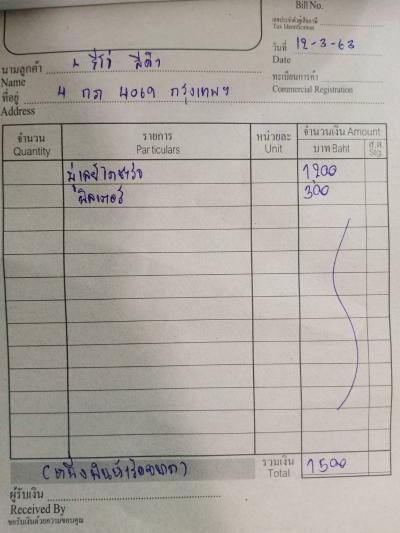 Bill No.
เลขประจำตัวผู้เสียภาษี
Tax Identification
วันที่ 12-3-63
Date
นามลูกค้า
Name
ทะเบียนการค้า
Commercial Registration
ที่อยู่ 4 กภ 4069 กรุงเทพฯ
Address
จำนวน รายการ หน่วยละ จำนวนเงิน Amount
Quantity Particulars Unit บาท Baht ส.ต. Stg.
มู่เลย์ไดชาร์จ 1200
ฟิลเตอร์ 300
(หนึ่งพันห้าร้อยบาท) รวมเงิน 1500
Total
ผู้รับเงิน
Received By
ขอรับเงินด้วยความขอบคุณ